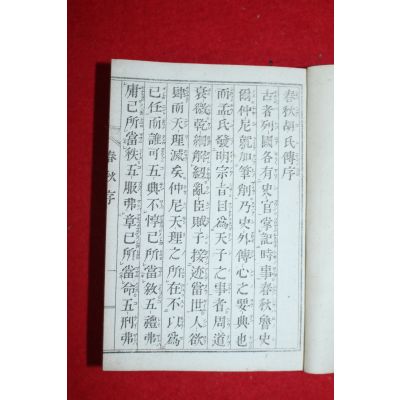 春秋胡氏傳序
古者列國各有史官掌記時事春秋魯史
爾仲尼就加筆削乃史外傳心之要典也
而孟氏發明宗旨目爲天子之事者周道
衰微乾綱解紐亂臣賊子接迹當世人欲
肆而天理滅矣仲尼天理之所在不以爲
己任而誰可五典不惇己所當敘五禮弗
庸己所當秩五服弗章己所當命五刑弗
春秋序